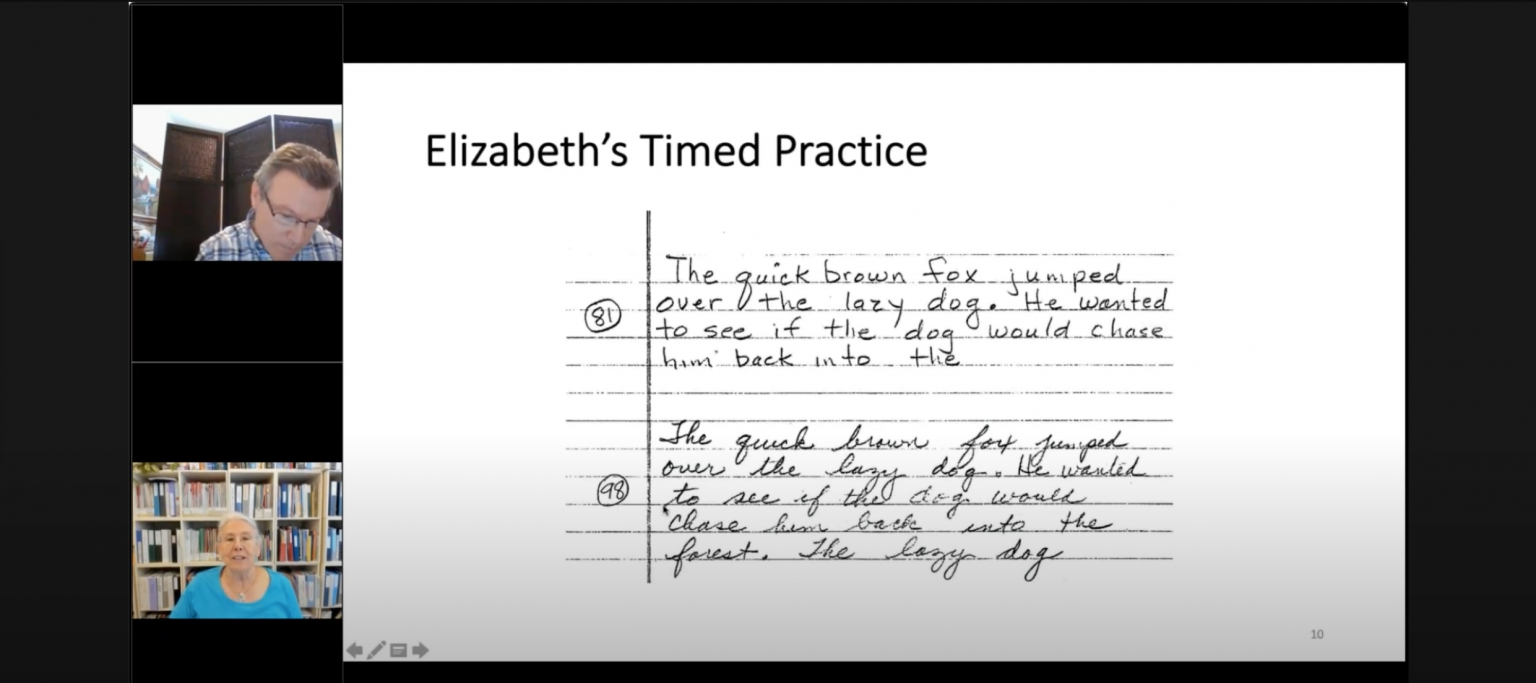 Elizabeth's Timed Practice
The quick brown fox jumped
over the lazy dog. He wanted
81
to see if the dog would chase
him back into the
The quick brown fox jumped
over the lazy dog. He wanted
98
to see if the dog would
chase him back into the
forest. The lazy dog
10